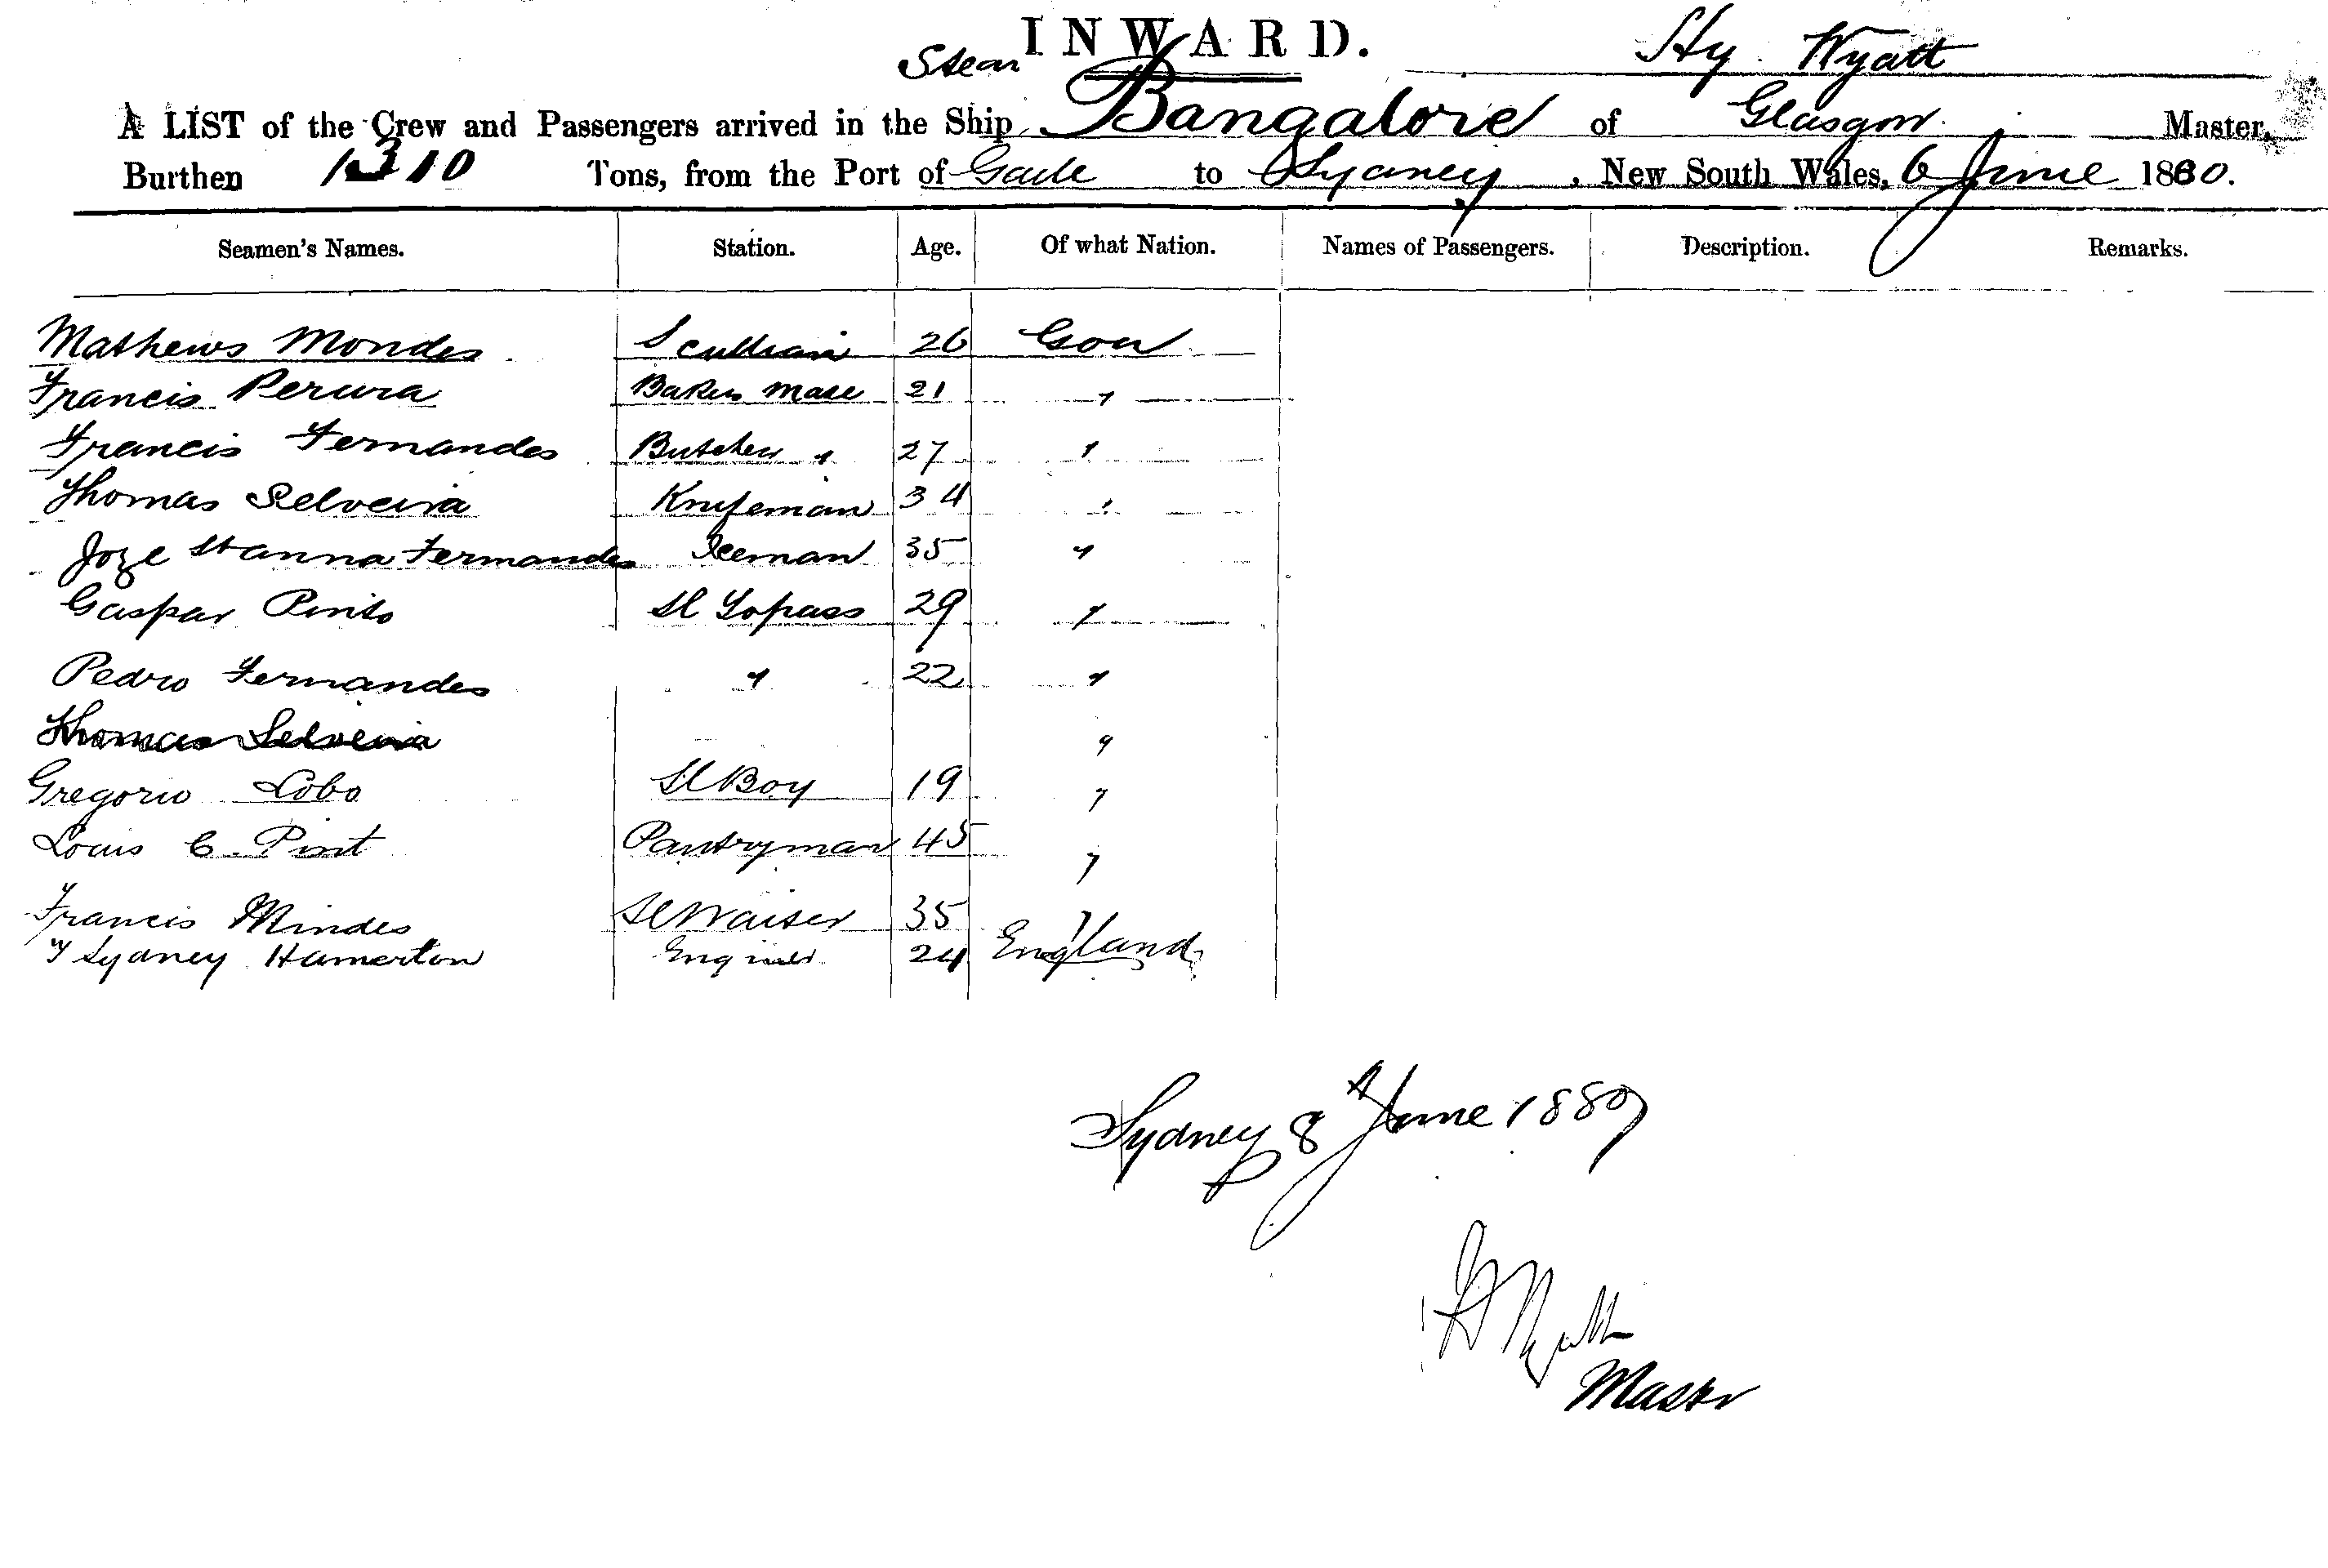 INWARD.
Steam Hy. Wyatt
A LIST of the Crew and Passengers arrived in the Ship Bangalore of Glasgow Master,
Burthen 1310 Tons, from the Port of Galle to Sydney, New South Wales, 6 June 1880.
Seamen's Names. Station. Age. Of what Nation. Names of Passengers. Description. Remarks.
Mathews Mondes Scullian 26 Goa
Francis Perura Bakers Mate 21 "
Francis Fernandes Butcher " 27 "
Thomas Selveira Knifeman 34 "
Joze Stanna Fernandes Iceman 35 "
Gaspar Pinto Sl Topass 29 "
Pedro Fernandes " 22 "
Thomas Selveira "
Gregorio Lobo Sl Boy 19 "
Louis C. Pint Pantryman 45 "
Francis Mindes Sl Waiter 35 "
Sydney Hamerton Engineer 24 England
Sydney 8th June 1880
H Wyatt
Master